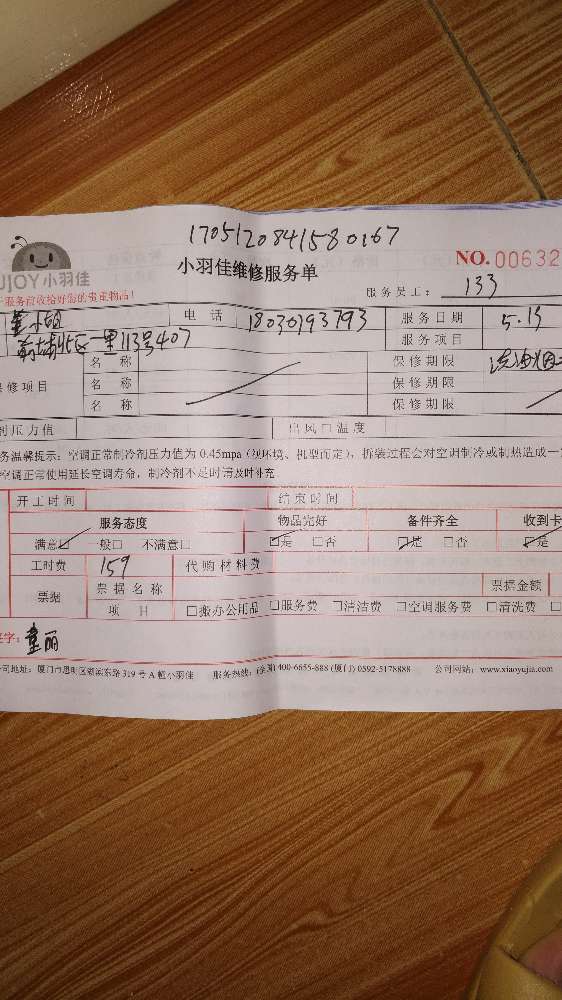 1705120841580167
小羽佳维修服务单
NO.00632
JOY小羽佳
服务员工: 133
服务前收给好您的贵重物品!
董小姐 电话 18030793793 服务日期 5.13
前埔北区一里113号407 服务项目
名称 保修期限 洗油烟
修项目 名称 保修期限
名称 保修期限
剂压力值 出风口温度
务温馨提示: 空调正常制冷剂压力值为 0.45mpa (视环境、机型而定), 拆装过程会对空调制冷或制热造成一
空调正常使用延长空调寿命, 制冷剂不足时请及时补充
开工时间 结束时间
服务态度 物品完好 备件齐全 收到卡
满意☑ 一般□ 不满意□ ☑是 □否 ☑是 □否 ☑是
工时费 159 代购材料费
票据 票据名称 票据金额
项目 □搬办公用品 □服务费 □清洁费 □空调服务费 □清洗费 □
签字: 董丽
公司地址: 厦门市思明区湖滨东路 319 号 A 幢小羽佳 服务热线: (全国) 400-6655-888 (厦门) 0592-5178888 公司网站: www.xiaoyujia.com